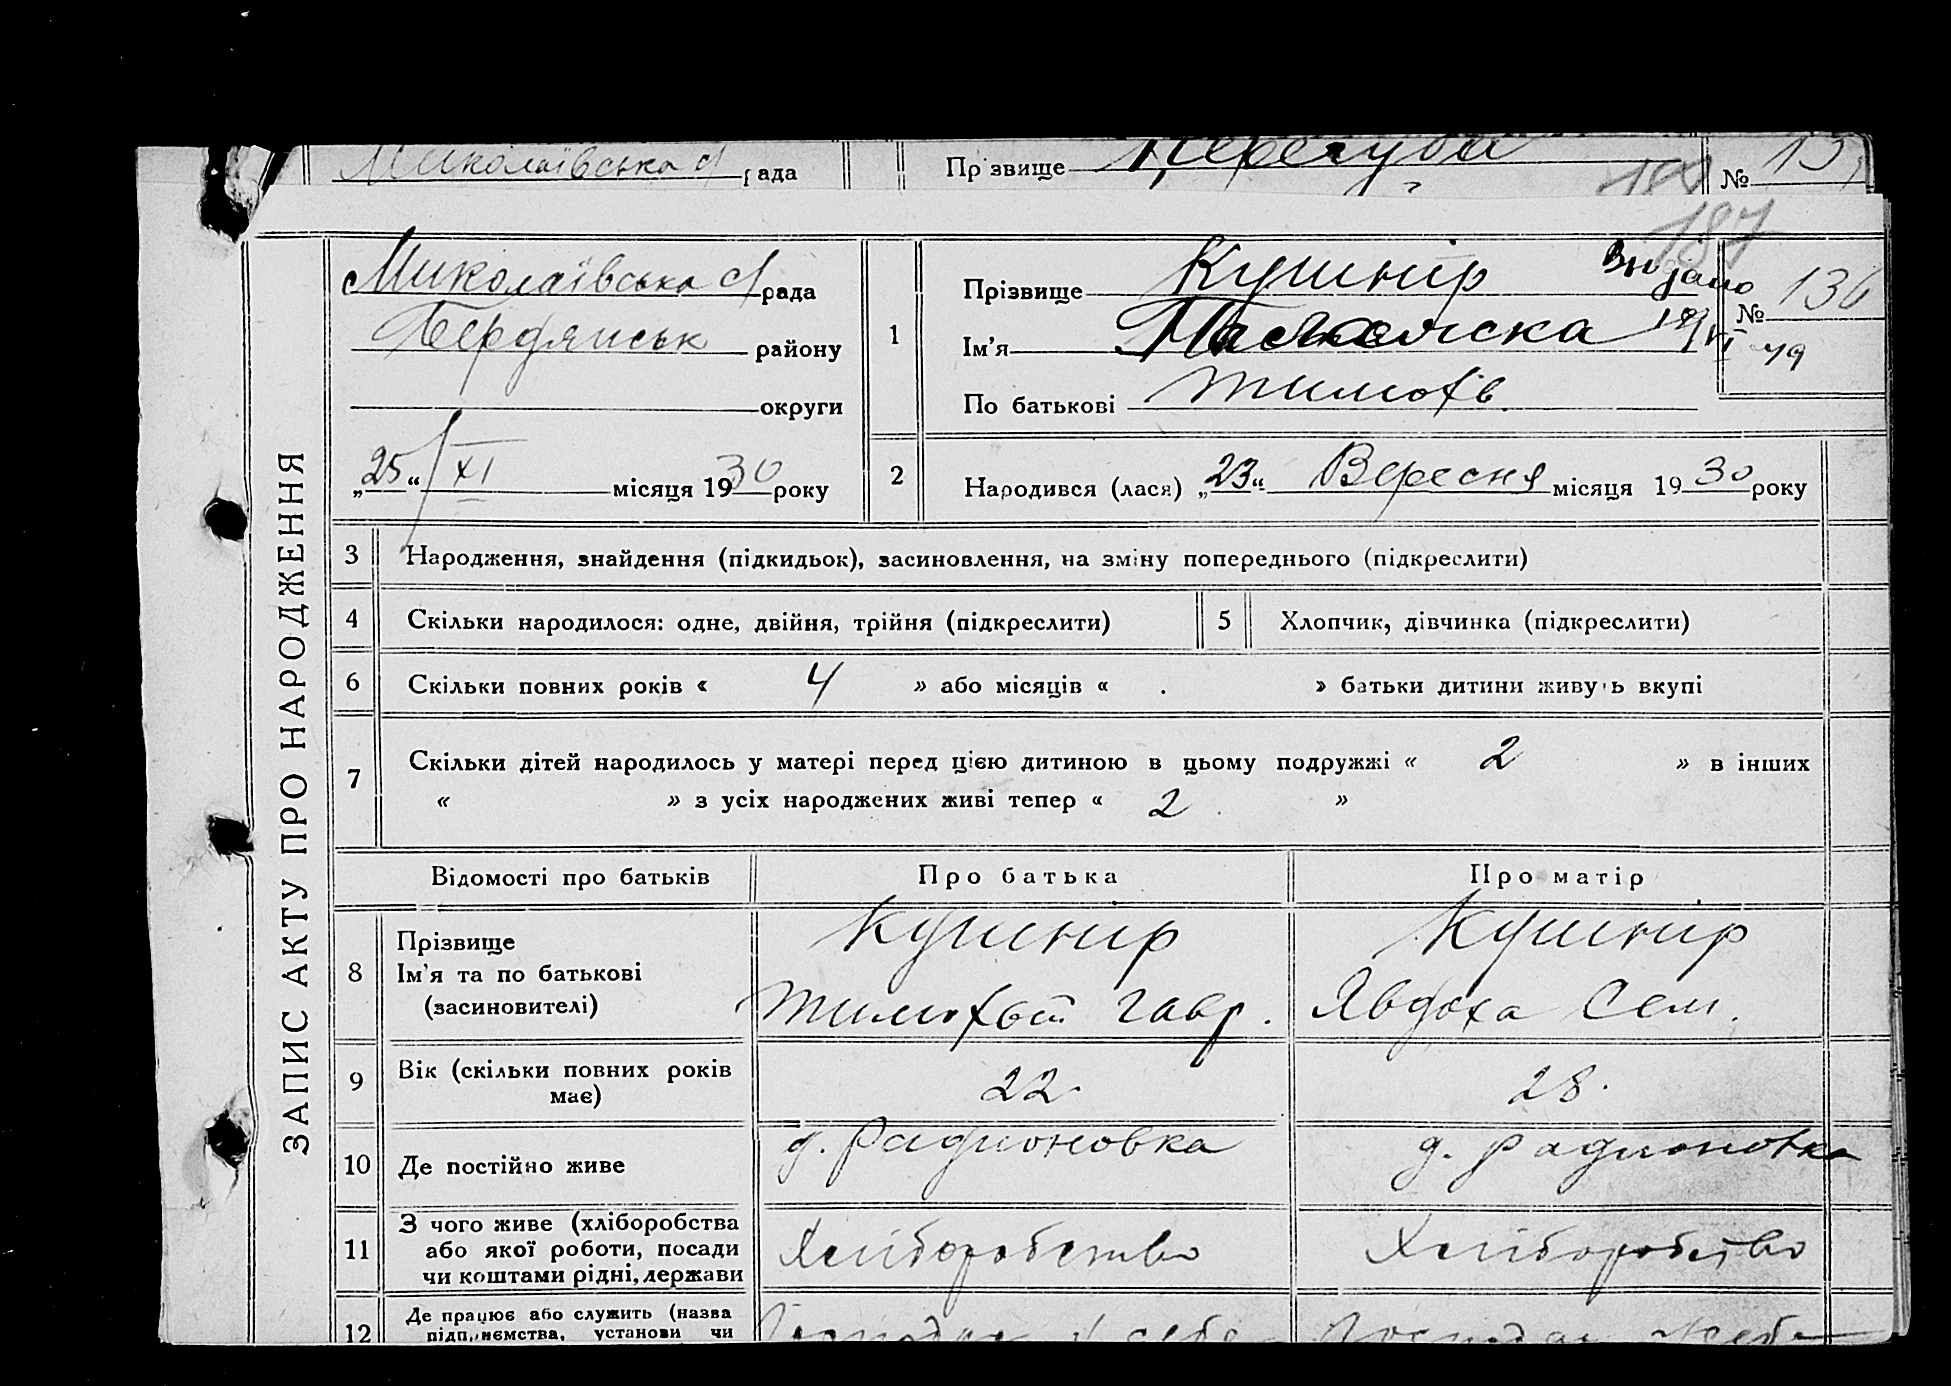 Миколаївська с/рада Прізвище Перегуда № 13
187
ЗАПИС АКТУ ПРО НАРОДЖЕННЯ
Миколаївська с/рада
Бердянськ району
округи
„25“ XI місяця 1930 року
1
Прізвище Кушнір
Ім'я
По батькові Тимофів.
Видано
19/VI 49
№ 136
2 Народився (лася) „23“ Вересня місяця 1930 року
3 Народження, знайдення (підкидьок), засиновлення, на зміну попереднього (підкреслити)
4 Скільки народилося: одне, двійня, трійня (підкреслити) 5 Хлопчик, дівчинка (підкреслити)
6 Скільки повних років « 4 » або місяців « » батьки дитини живуть вкупі
7 Скільки дітей народилось у матері перед цією дитиною в цьому подружжі « 2 » в інших
« » з усіх народжених живі тепер « 2 »
Відомості про батьків Про батька Про матір
8 Прізвище Кушнір Кушнір
Ім'я та по батькові
(засиновителі) Тимофій Гавр. Явдоха Сем.
9 Вік (скільки повних років
має) 22 28.
10 Де постійно живе д. Радионовка д. Радионовка
11 З чого живе (хліборобства
або якої роботи, посади Хліборобство Хліборобство
чи коштами рідні, держави
12 Де працює або служить (назва
підприємства, установи чи